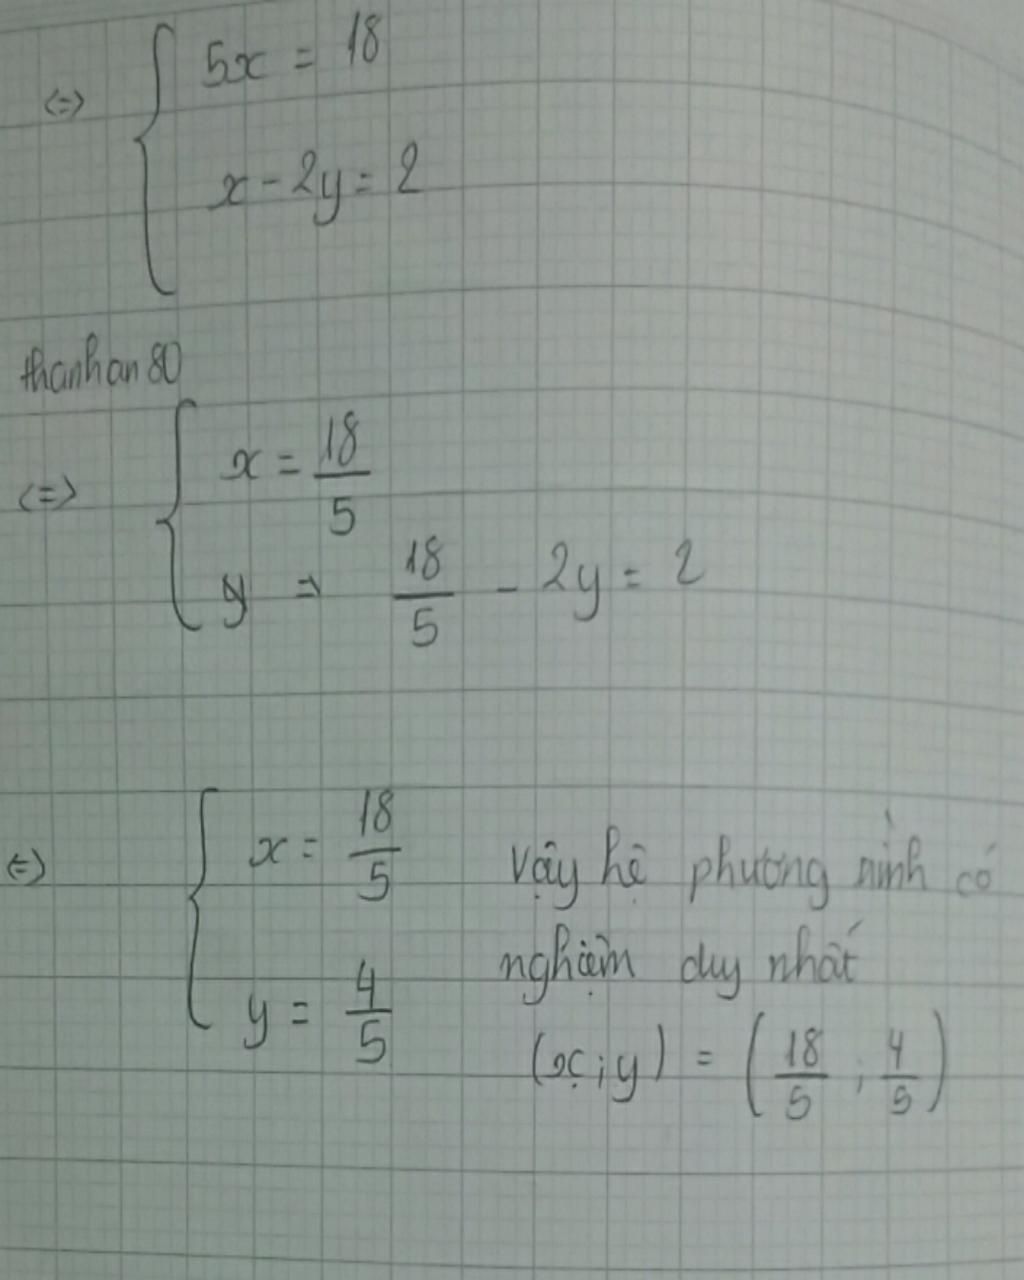 <=> { 5x = 18
x - 2y = 2
thanhan80
<=> { x = 18/5
y => 18/5 - 2y = 2
<=> { x = 18/5
y = 4/5
Vậy hệ phương rình có
nghiệm duy nhất
(x;y) = (18/5 ; 4/5)